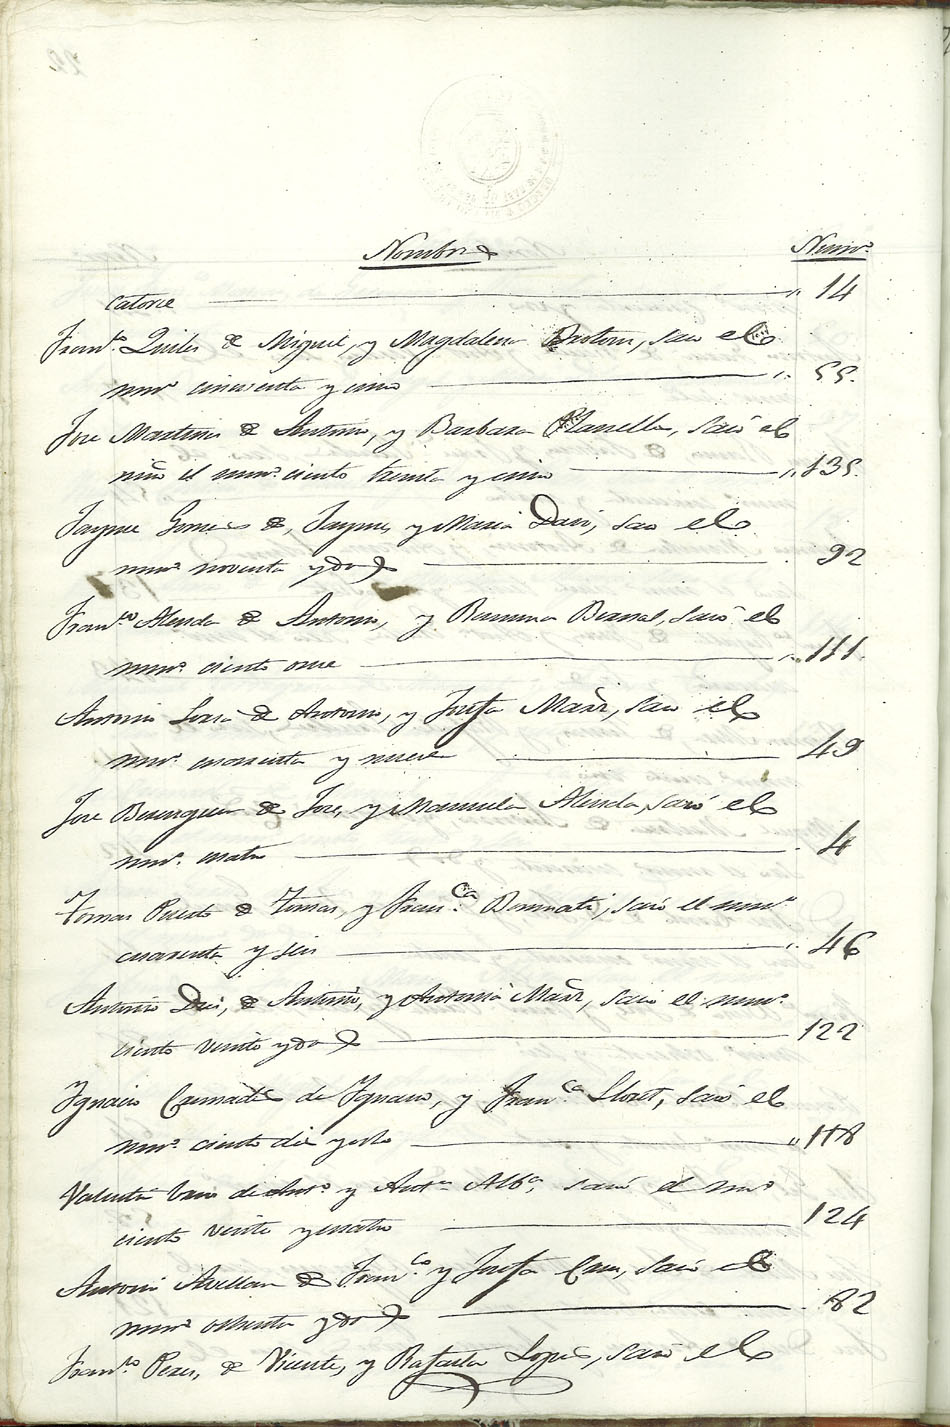 Nombres Numº
catorce 14
Franco. Quiles de Miguel, y Magdalena Brotons, saco el
numº cincuenta y cinco 55.
Jose Martines de Antonio, y Barbara Planella, sacó el
niño el numº ciento treinta y cinco 135.
Jayme Gomes de, Jayme, y Maria Davi, saco el
numº noventa y dos 92
Franco. Alenda de Antonio, y Ramona Bernal, sacó el
numº ciento once 111.
Antonio de Antonio, y Josefa Mañr, saco el
numº cuarenta y nueve 49
Jose Berenguer de Jose, y Manuela Alenda, sacó el
numº cuatro 4
Tomas Puerto de Tomas, y Franca. sacó el numº
cuarenta y seis 46
Antonio de Antonio, y Antonia Mañr, sacó el numº
ciento veinte y dos 122
Ygnacio Cremades de Ygnacio, y Franca. Lloret, sacó el
numº ciento diez y ocho 118
Valentin de Anto. y Anta. Alba. sacó el numº
ciento veinte y cuatro 124
Antonio Avellan de Franco. y Josefa sacó el
numº ochenta y dos 82
Franco. Peres, de Vicente, y Rafaela Lopes, sacó el